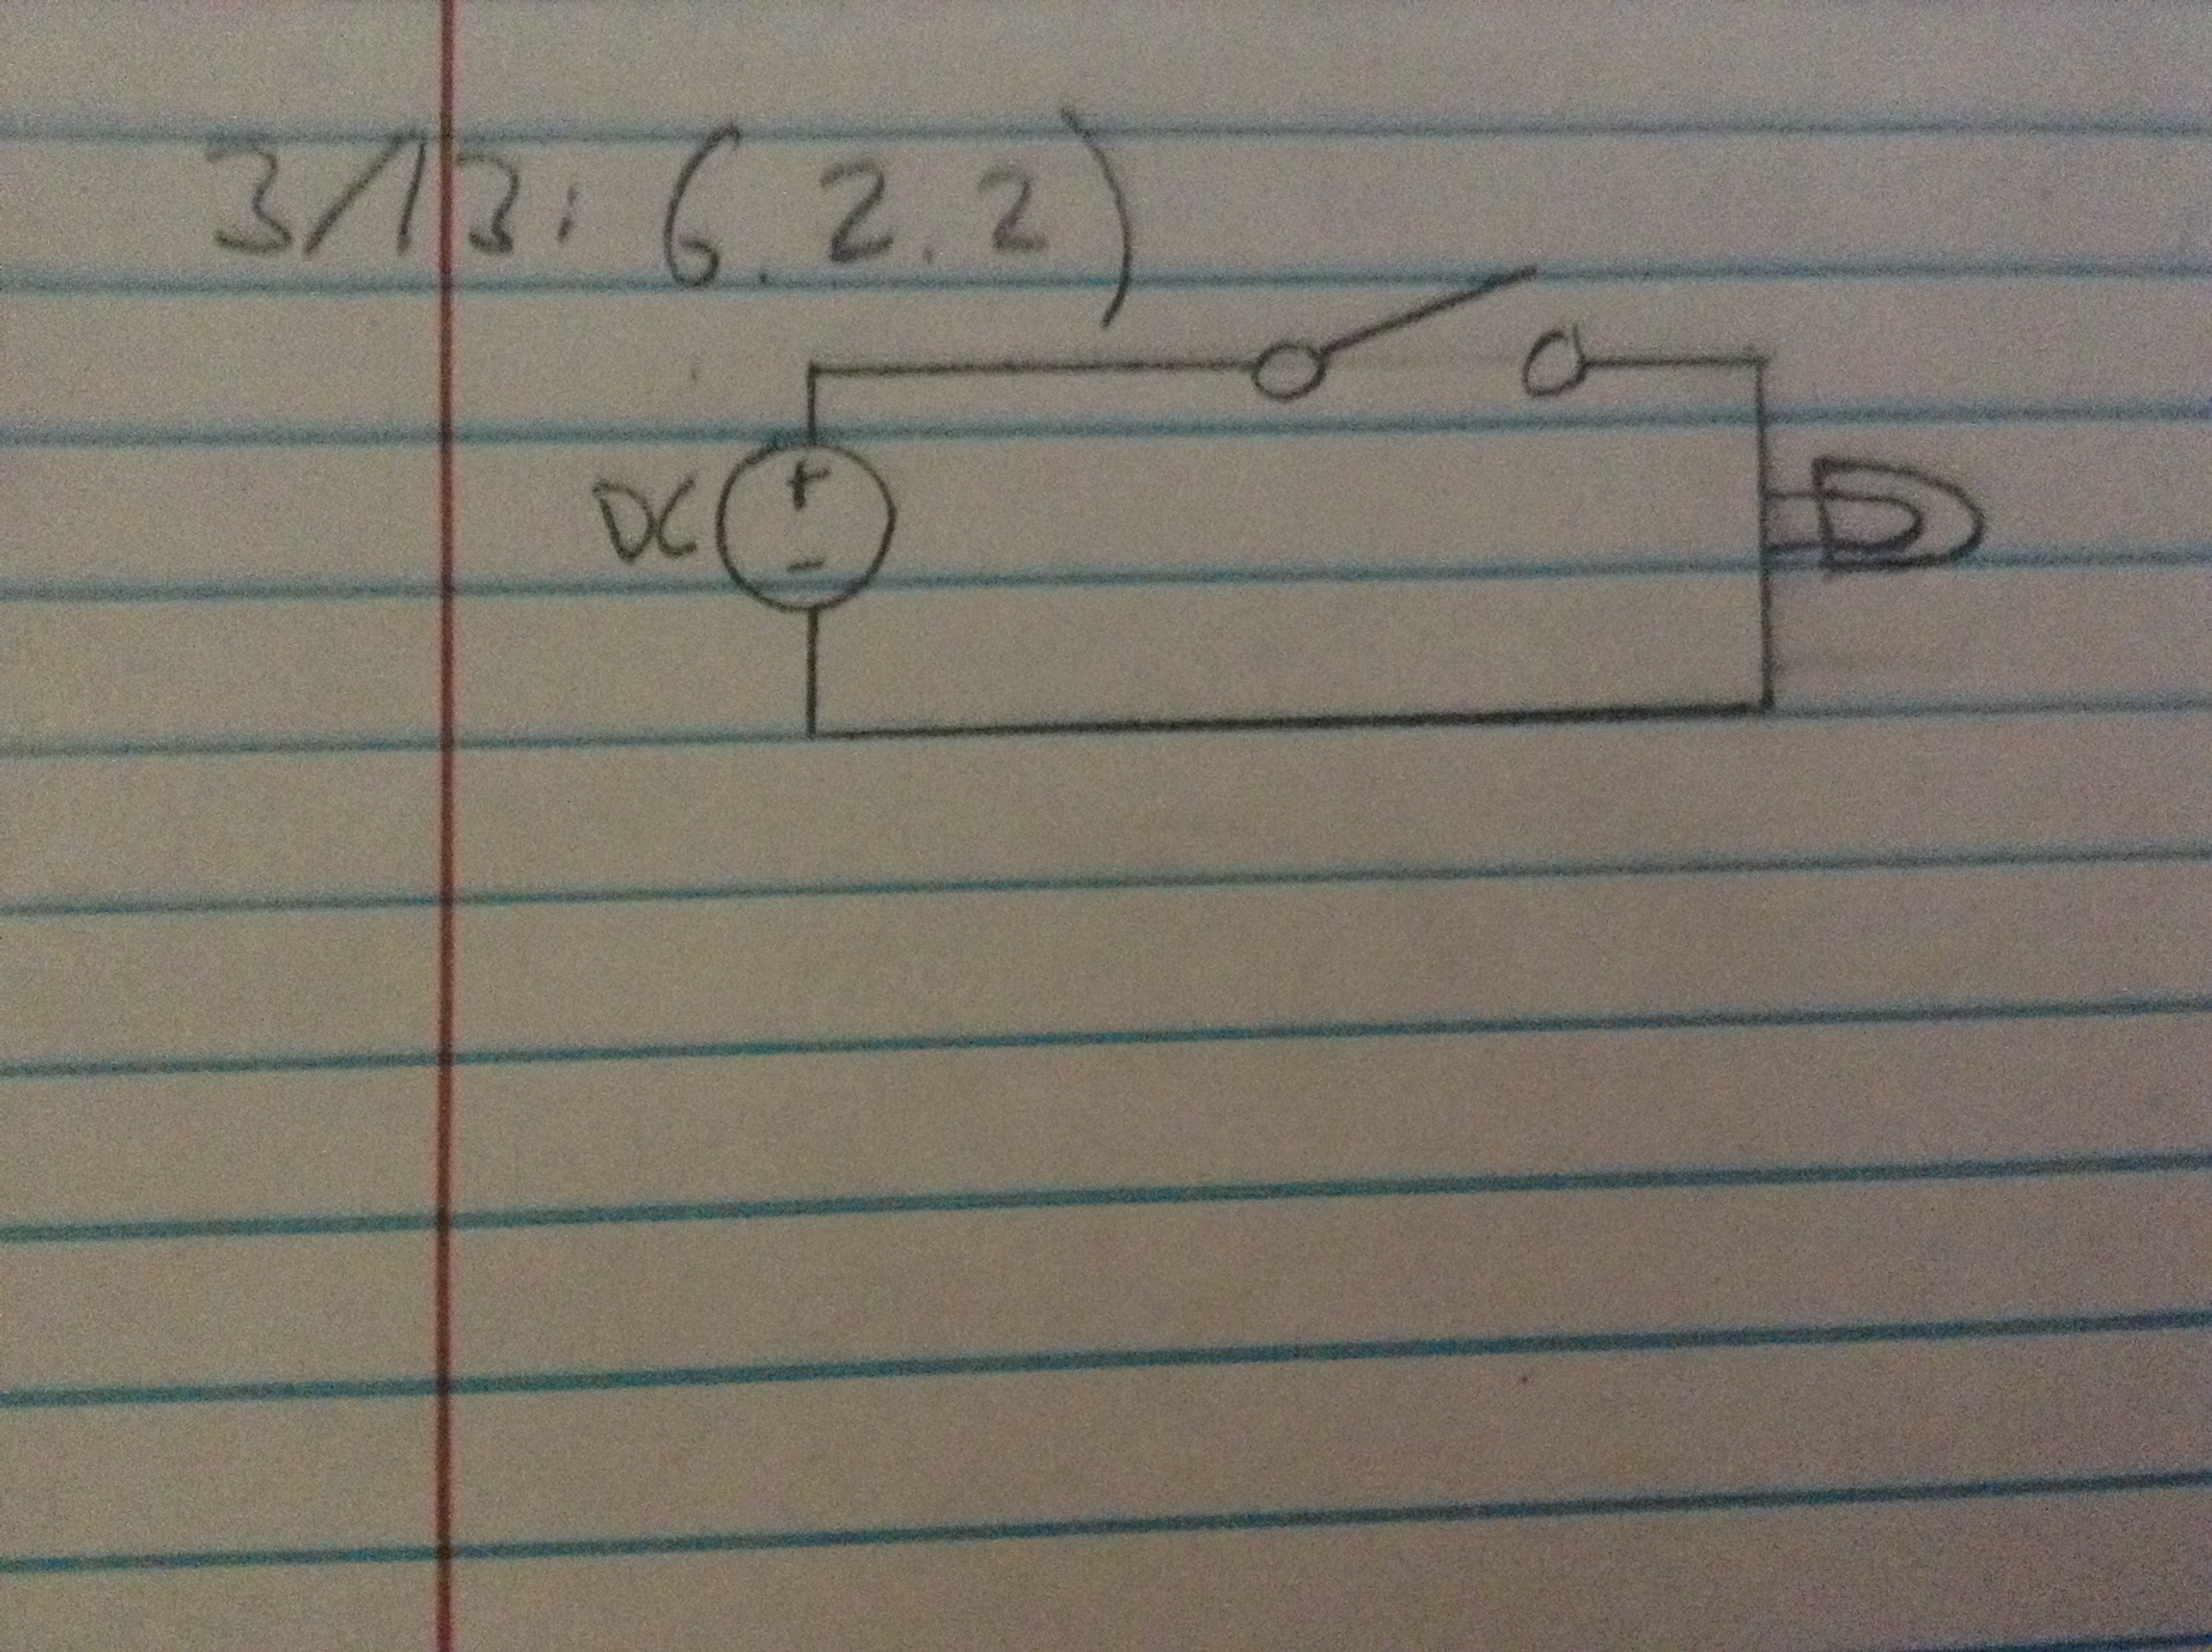 3/13: (6.2.2)
DC
+
-